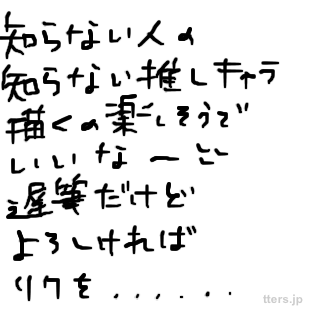 知らない人の
知らない推しキャラ
描くの楽しそうで
いいなーこに
遅筆だけど
よろしければ
リクを......
tters.jp